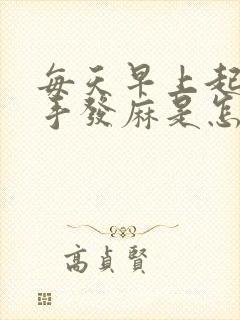 每天早上起
手發麻是怎
高貞賢